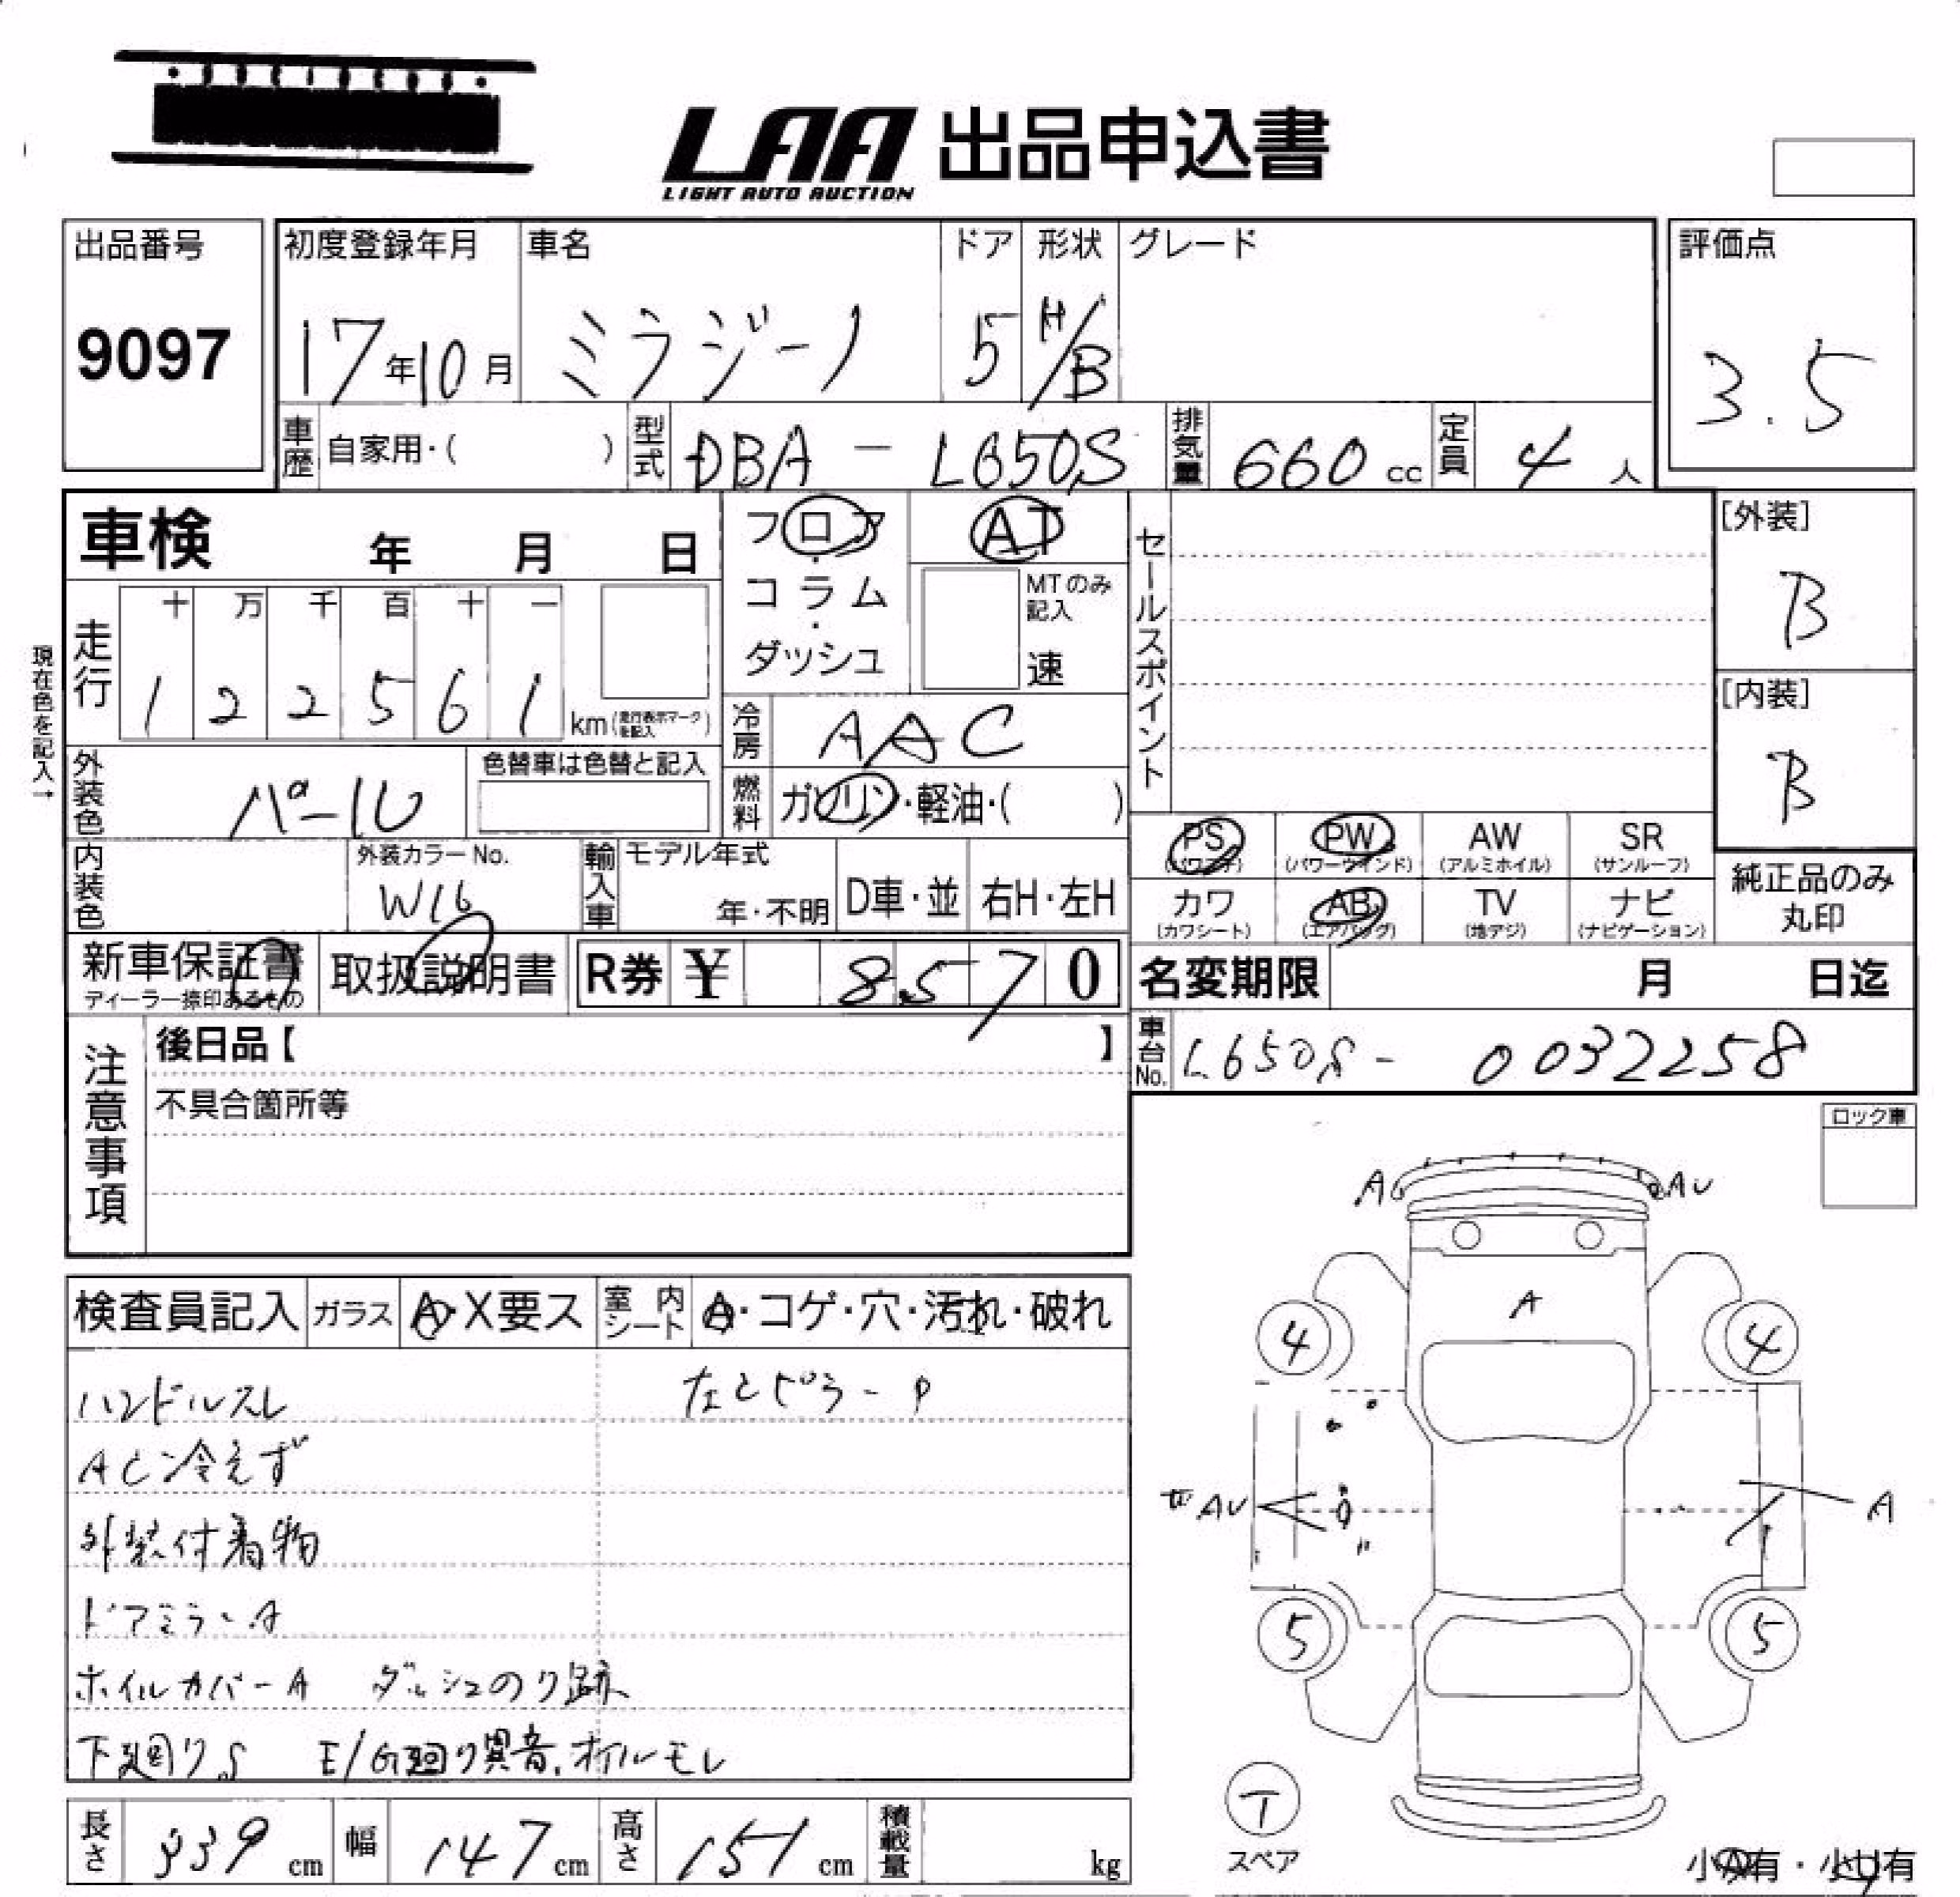 LAA 出品申込書
LIGHT AUTO AUCTION
出品番号 初度登録年月 車名 ドア 形状 グレード 評価点
9097 17年10月 ミラジーノ 5 H/B 3.5
車歴 自家用・( ) 型式 DBA-L650S 排気量 660cc 定員 4人
車検 年 月 日
フロア・コラム・ダッシュ
AT
MTのみ記入
速
セールスポイント
[外装]
B
[内装]
B
現在色を記入→
走行 十 万 千 百 十 一
1 2 2 5 6 1 km(走行表示マークを記入)
冷房 AAC
外装色 パール 色替車は色替と記入
燃料 ガソリン・軽油・( )
内装色 外装カラーNo. W16 輸入車 モデル年式 年・不明 D車・並 右H・左H
PS(パワステ) PW(パワーウインド) AW(アルミホイル) SR(サンルーフ)
カワ(カワシート) AB(エアバッグ) TV(地デジ) ナビ(ナビゲーション)
純正品のみ丸印
新車保証書 ディーラー捺印あるもの 取扱説明書 R券 ¥ 8570
名変期限 月 日迄
車台No. L650S- 0032258
注意事項
後日品【 】
不具合箇所等
ロック車
検査員記入 ガラス A・X要ス 室内シート A・コゲ・穴・汚れ・破れ
ハンドルスレ
ACン冷えず
外装付着物
ドアミラーA
ホイルカバーA ダッシュのり跡
下廻りS E/G廻り異音、オイルモレ
A AU
A
4 4
AU A
5 5
T
スペア
小A有・小U有
長さ 339cm 幅 147cm 高さ 151cm 積載量 kg